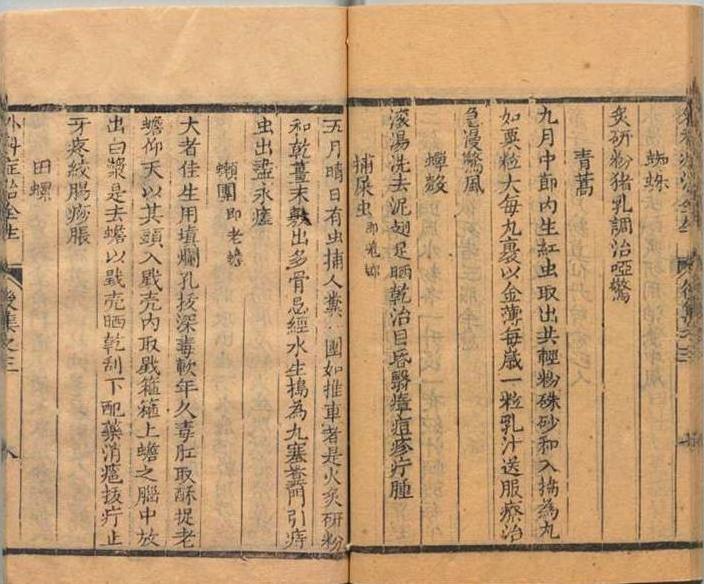 蜘蛛
炙研粉猪乳調治啞驚
青蒿
九月中節內生紅虫取出共輕粉硃砂和入搗為丸
如粟粒大每丸裹以金薄每歲一粒乳汁送服療治
急漫驚風
蟬殼
滚湯洗去泥翅足晒乾治目昏翳瘂痘疹疔腫
捕屎虫 即蜣螂
五月晴日有虫捕人糞一團如推車者是火炙研粉
和乾薑末敷出多骨忌經水生搗為丸塞糞門引痔
虫出盡永痊
癩團 即老蟾
大者佳生用填爛孔拔深毒軟年久毒肛取酥捉老
蟾仰天以其頭入戥壳內取戥箍箍上蟾之腦中放
出白漿是去蟾以戥壳晒乾刮下配藥消疽拔疔止
牙疼絞腸痧脹
田螺
外科症治全生 後集之三
八